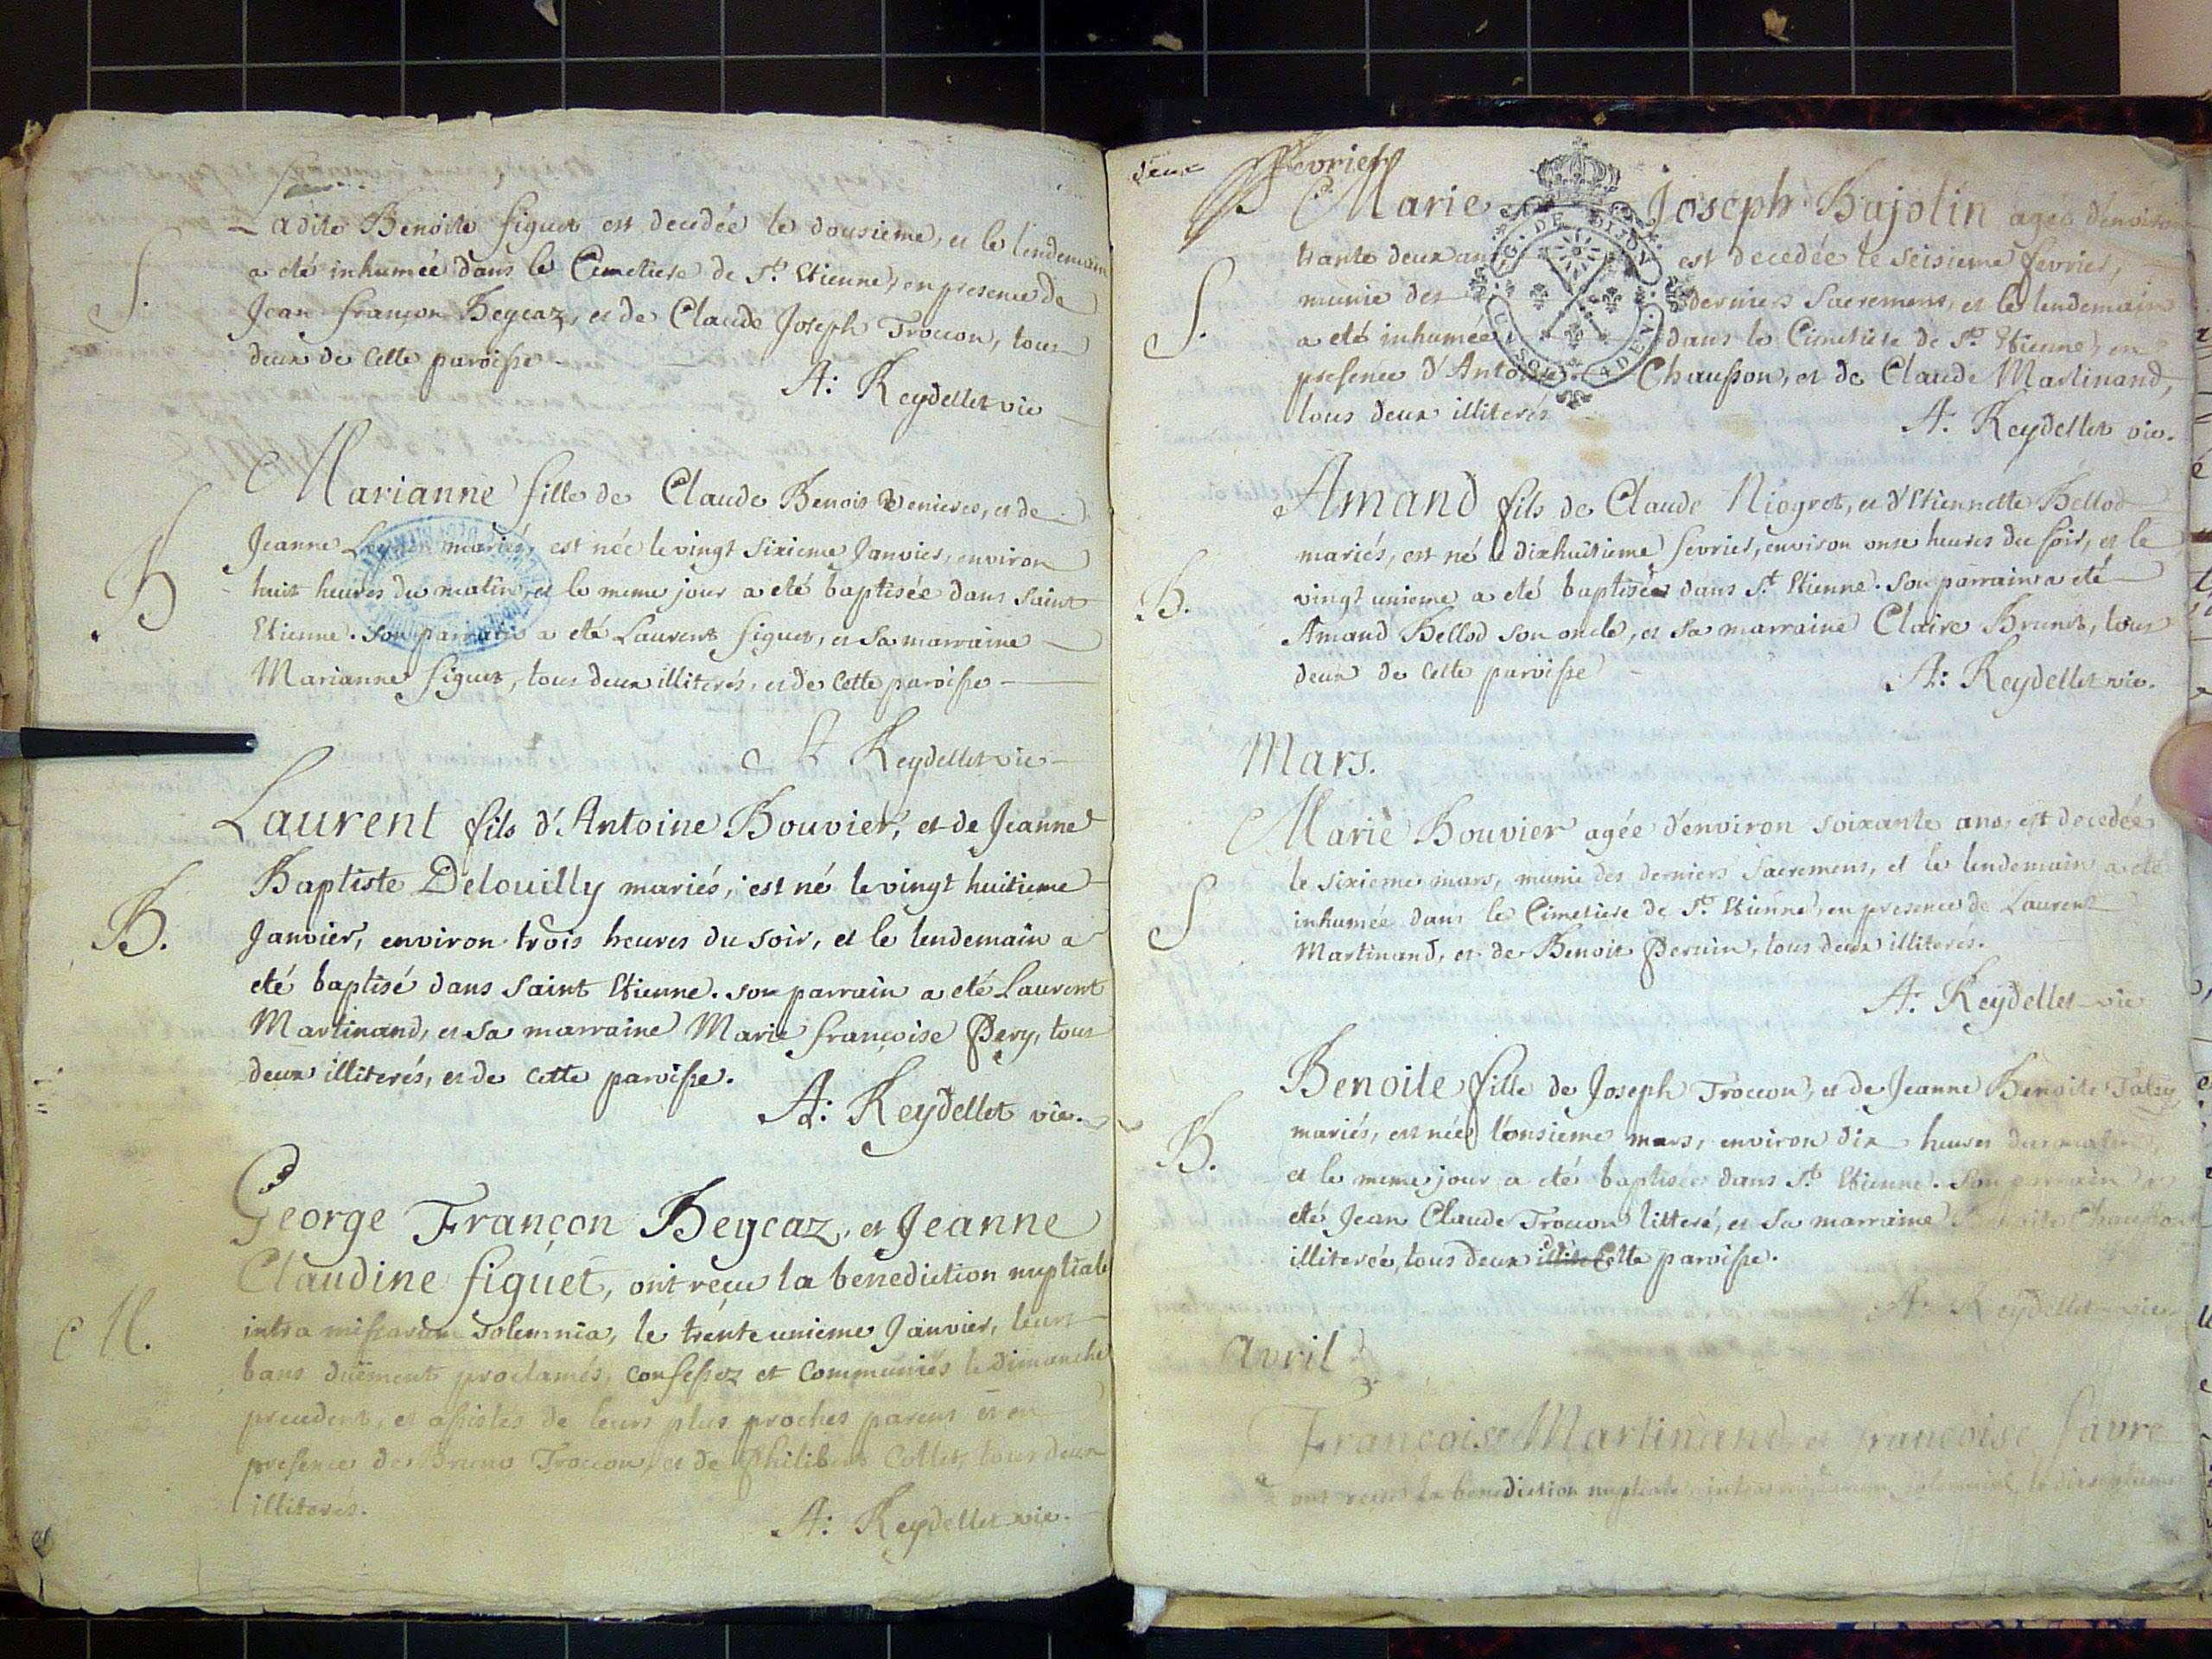 S.
Ladite Benoite figuet est decedée le dousieme, et le lendemain
a eté inhumée dans le Cimetiere de St. Etienne, en presence de
Jean françon Beycaz, et de Claude Joseph Troccon, tous
deux de cette paroisse
A: Reydellet vic
B
Marianne fille de Claude Benoit et de
Jeanne mariés, est née le vingt sixieme Janvier, environ
huit heures du matin, et le meme jour a eté baptisée dans Saint
Etienne. Son parrain a eté Laurent figuet, et Sa marraine
Marianne figuet, tous deux illiterés, et de Cette paroisse
A Reydellet vic
B.
Laurent fils d'Antoine Bouvier, et de Jeanne
Baptiste Delouilly mariés, est né le vingt huitieme
Janvier, environ trois heures du soir, et le lendemain a
eté baptisé dans Saint Etienne. son parrain a eté Laurent
Martinand, et sa marraine Marie françoise Pery, tous
deux illiterés, et de cette paroisse.
A: Reydellet vic.
M.
George Françon Beycaz, et Jeanne
Claudine figuet, ont reçu la benediction nuptiale
intra missarum solemnia, le trente unieme Janvier, leurs
bans duëment proclamés, confessez et Communiés le Dimanche
precedent, et assistés de leurs plus proches parens et en
presence de Bruno Troccon, et de Philibert Collet, tous deux
illiterés.
A: Reydellet vic.
fevrier
S.
Marie Joseph Bajolin agée d'environ
trante deux ans est decedée le seisieme fevrier,
munie des derniers Sacremens, et le lendemain
a eté inhumée dans le Cimetiere de St. Etienne, en
presence d'Antoine Chausson, et de Claude Martinand,
tous deux illiterés
A: Reydellet vic.
G. DE DIJON
B.
Amand fils de Claude Niogret, et d'Etiennette Bellod
mariés, est né le dixhuitieme fevrier, environ onse heures du soir, et le
vingt unieme a eté baptisé dans St. Etienne. Son parrain a eté
Amand Bellod son oncle, et Sa marraine Claire Brunet, tous
deux de cette paroisse
A: Reydellet vic.
Mars.
S
Marie Bouvier agée d'environ soixante ans, est decedée
le sixieme mars, munie des derniers Sacremens, et le lendemain a eté
inhumée dans le Cimetiere de St. Etienne, en presence de Laurent
Martinand, et de Benoit Peruin, tous deux illiterés.
A: Reydellet vic
B.
Benoite fille de Joseph Troccon, et de Jeanne Benoite
mariés, est née l'onsieme mars, environ dix heures du matin,
et le meme jour a eté baptisée dans St. Etienne. Son parrain a
eté Jean Claude Troccon litteré, et Sa marraine Benoite Chausson
illiterée, tous deux de Cette paroisse.
A: Reydellet vic
avril
Françoise Martinand et françoise favre
ont reçu la benediction nuptiale intra missarum solemnia, le